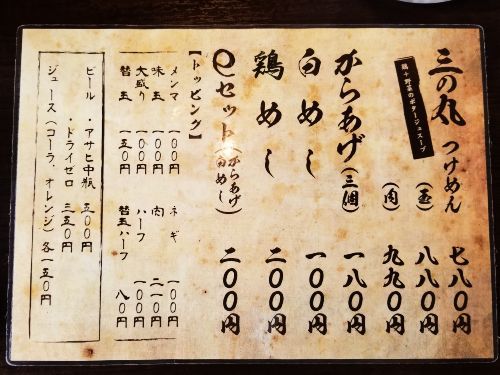 三の丸 つけめん 七八〇円
鶏+野菜のポタージュスープ
(玉) 八八〇円
(肉) 九九〇円
からあげ(三個) 一八〇円
白めし 一〇〇円
鶏めし 二〇〇円
eセット(からあげ 白めし) 二〇〇円
【トッピング】
メンマ 一〇〇円 ネギ 一〇〇円
味玉 一〇〇円 肉 二一〇円
大盛り 一〇〇円 ハーフ 一〇〇円
替玉 一五〇円 替玉ハーフ 八〇円
ビール・アサヒ中瓶 五〇〇円
・ドライゼロ 三五〇円
ジュース(コーラ、オレンジ)各一五〇円